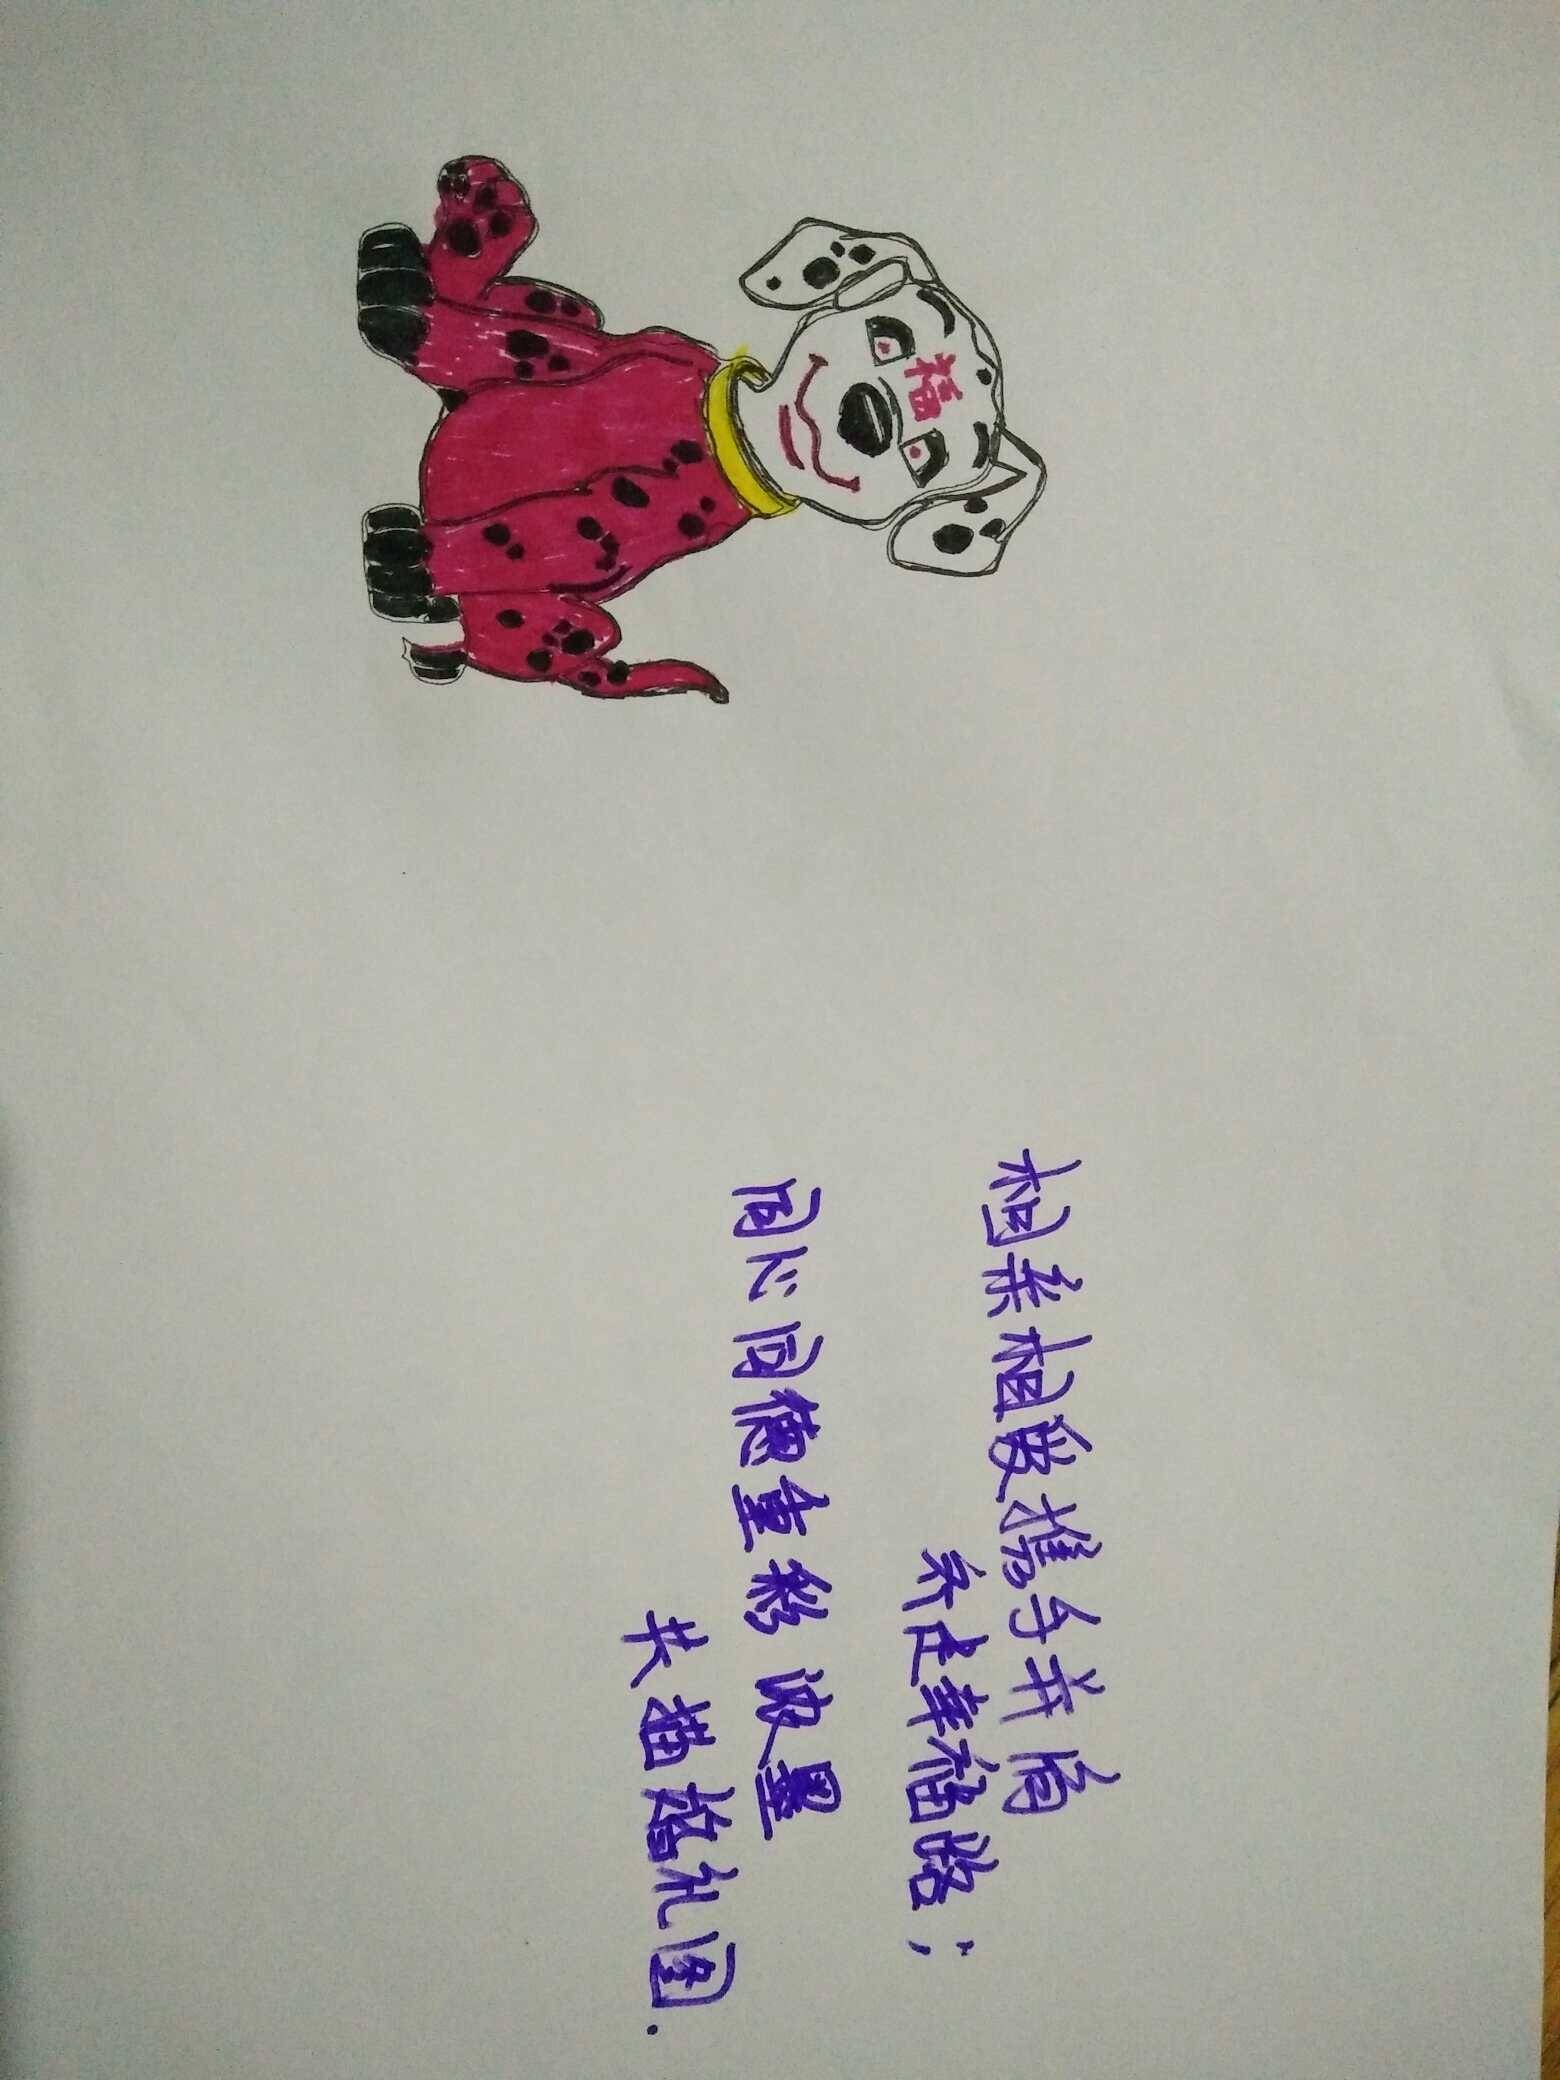 福
相亲相爱携手并肩
齐走幸福路；
同心同德重彩浓墨
共描婚礼图.